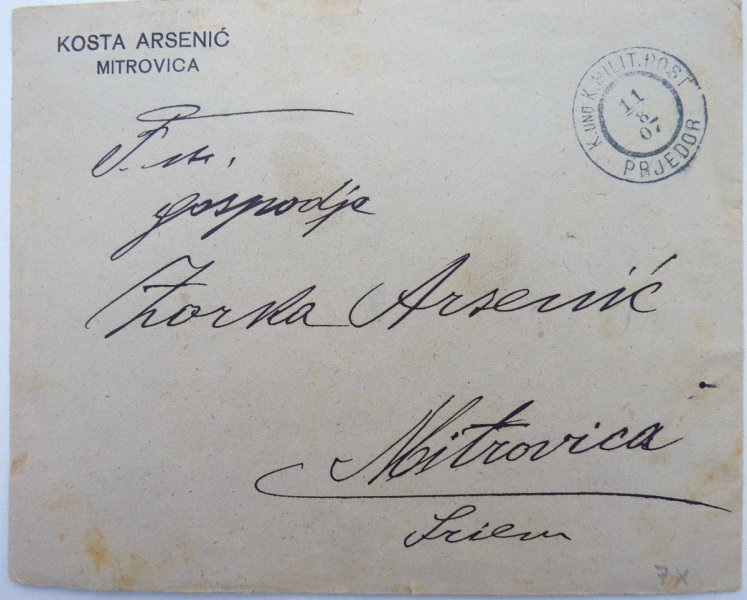 KOSTA ARSENIĆ
MITROVICA
K. UND K. MILIT. POST
11
/8/
07
PRJEDOR
gospodja
Zorka Arsenić
Mitrovica
Sriem
7x